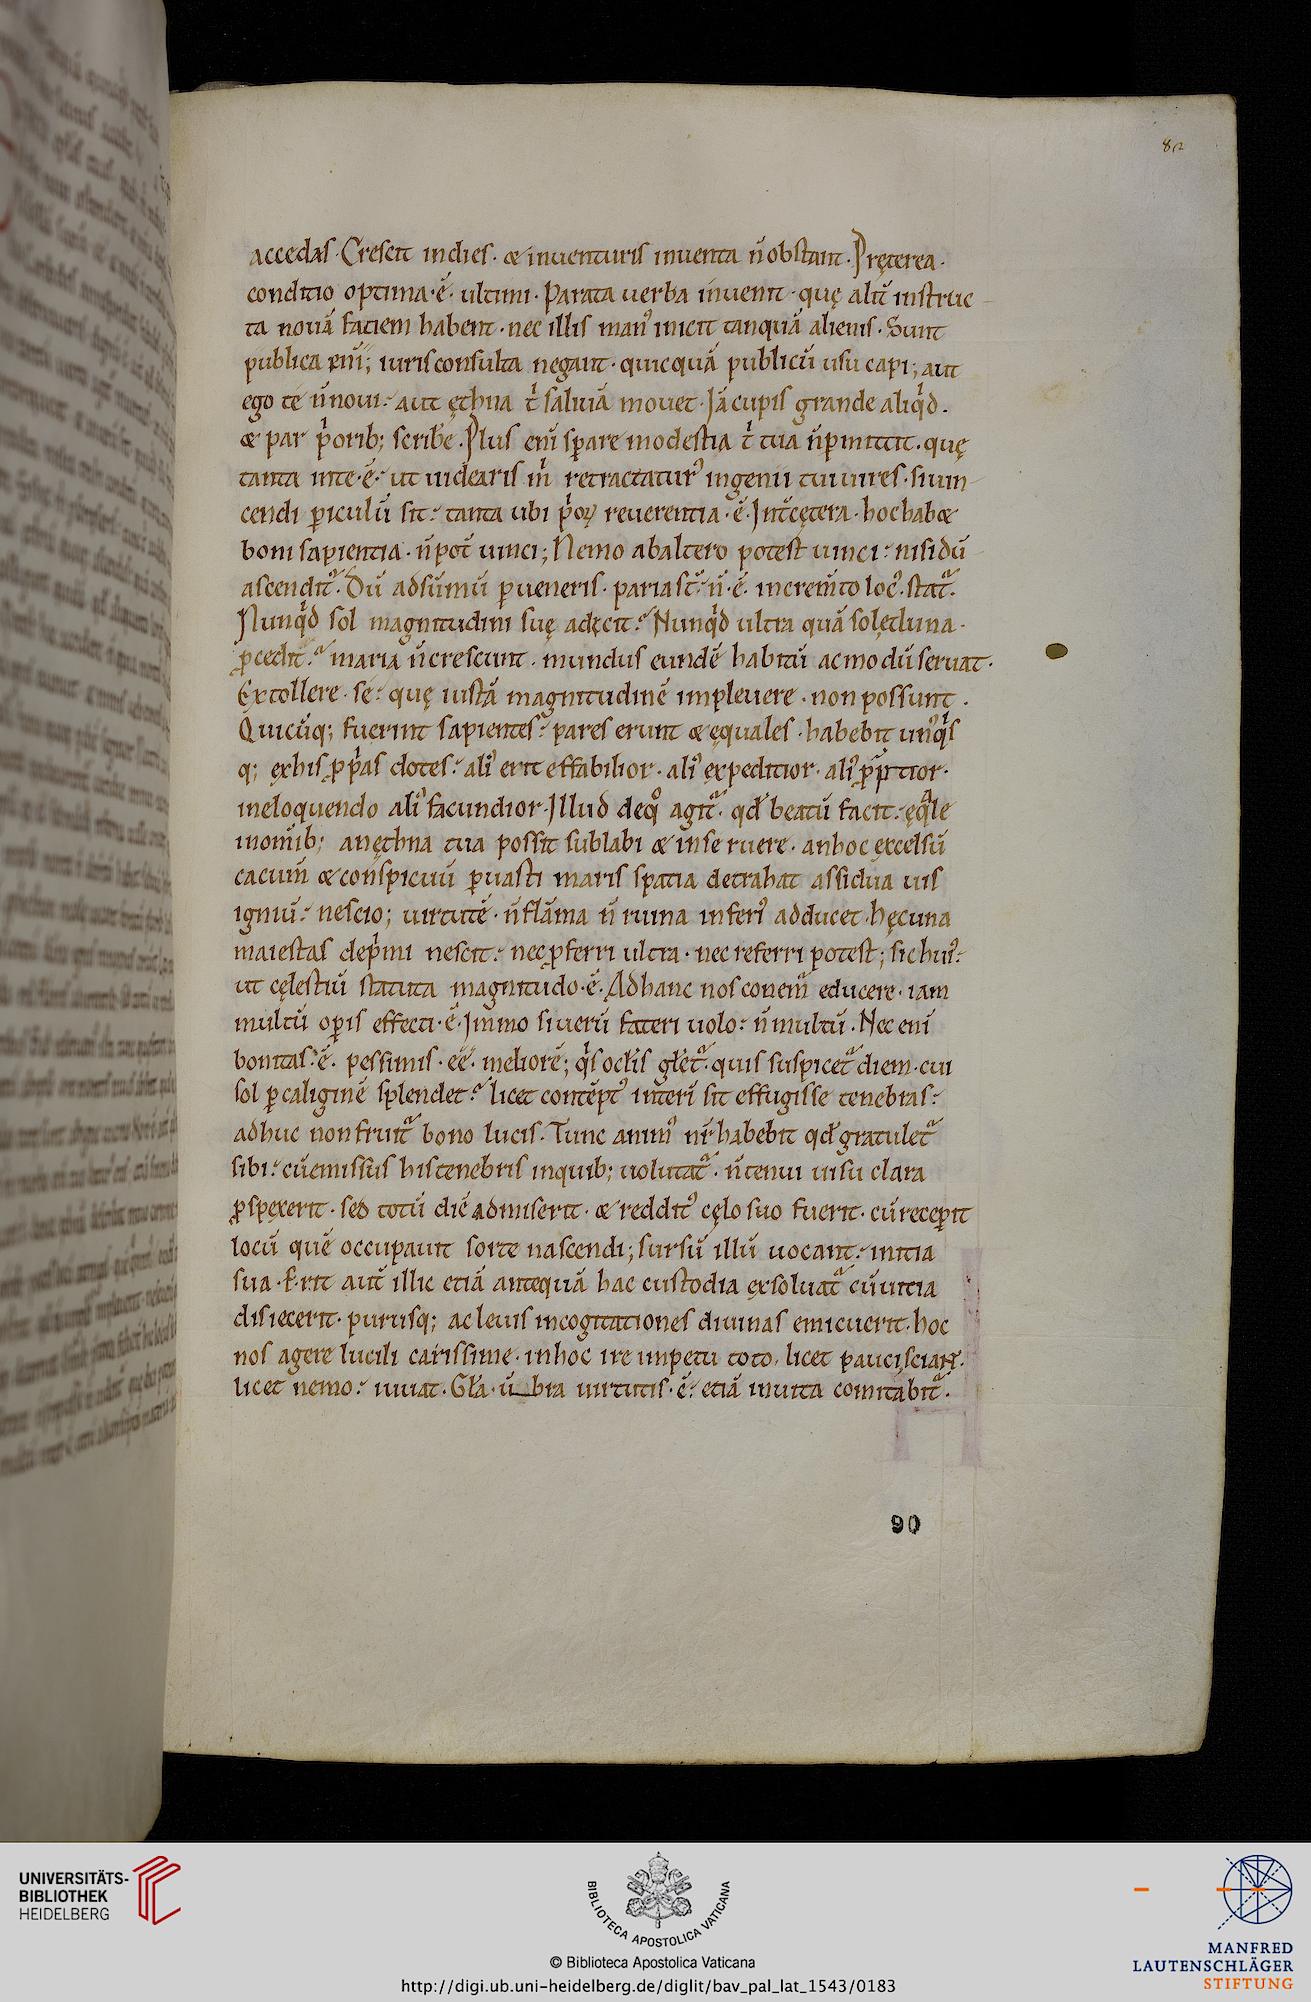 82
accedas · Crescit indies · & inuenturis inuenta n̄ obstant · Pręterea ·
conditio optima · ē · ultimi · Parata uerba inuenit · quę alit̄ instruc
ta nouā faciem habent · nec illis man᾽ inicit tanquā alienis · Sunt
publica eni̅; iurisconsulta negant · quicquā publicū usu capi; aut
ego te n̄ noui · aut ęthna t̄ saliuā mouet · Jā cupis grande aliqͥd ·
& par pͥorib; scribe · Plus eni̅ sperare modestia t̄ tua n̄ pmittit · quę
tanta inte · ē · ut uidearis mͥ retractatur᾽ ingenii tui uires · si uin
cendi periculū sit · tanta ubi pͥoꝝ reuerentia · ē · Int̄ cętera · hoc hab&
boni sapientia · n̄ pot̄ uinci; Nemo ab altero potest uinci · nisi dū
ascendit᷑ · Dū ad sūmū perueneris · paria st̄ · n̄ · ē · increm̄to loc᾽ · stat᷑ ·
Nunqͥd sol magnitudini suę adęcit · Nunqͥd ultra quā solet luna ·
ꝓcedit · maria n̄ crescunt · mundus eundē habitū ac modū seruat ·
Extollere · se · quę iustā magnitudinē impleuere · non possunt ·
Quicūq; fuerint sapientes · pares erunt & ęquales · habebit un᾽qͥs
q; ęx his ꝓpͥas dotes · ali᾽ erit effabilior · ali᾽ ęxpeditior · ali᾽ ꝓ̅ptior ·
in eloquendo ali᾽ facundior · Jllud deqͦ agit᷑ · qd̄ beatū facit · ęqͣle
in om̄ib; an ęthna tua possit sublabi & in se ruere · an hoc ęxcelsū
cacum̄ & conspicuū ꝑ uasti maris spatia detrahat assidua uis
igniū · nescio; uirtutē · n̄ flāma n̄ ruina inferi᾽ adducet · hęc una
maiestas depͥmi nescit · nec ꝓferri ultra · nec referri potest; sic hui᾽ ·
ut cęlestiū statuta magnitudo · ē · Ad hanc nos conem̄ educere · iam
multū opis effecti · ē · Jmmo si uerū fateri uolo · n̄ multū · Nec eni̅
bonitas · ē · pessimis · ēē · meliorē; qͥs ocl̄is gl̄et᷑ · quis suspicet᷑ diem · cui
sol ꝑ caliginē splendet · licet contēpt᾽ inteři sit effugisse tenebras ·
adhuc non fruit᷑ bono lucis · Tunc anim᾽ nr̄ habebit qd̄ gratulet᷑
sibi · cū emissus his tenebris in quib; uolutat᷑ · n̄ tenui uisu clara
ꝓspęxerit · sed totū diē admiserit · & reddit᾽ cęlo suo fuerit · cū receperit
locū quē occupauit sorte nascendi; sursū illū uocant · initia
sua · Erit aut̄ illic etiā antequā hac custodia ęxsoluat᷑ cū uitia
disiecerit · purusq; ac leuis in cogitationes diuinas emicuerit · hoc
nos agere lucili carissime · in hoc ire impetu toto · licet pauci sciant ·
licet nemo · uiuat · Gl̄a · ūbra uirtutis · ē · etiā inuita comitabit᷑ ·
90
UNIVERSITÄTS-
BIBLIOTHEK
HEIDELBERG
BIBLIOTECA APOSTOLICA VATICANA
© Biblioteca Apostolica Vaticana
http://digi.ub.uni-heidelberg.de/diglit/bav_pal_lat_1543/0183
MANFRED
LAUTENSCHLÄGER
STIFTUNG